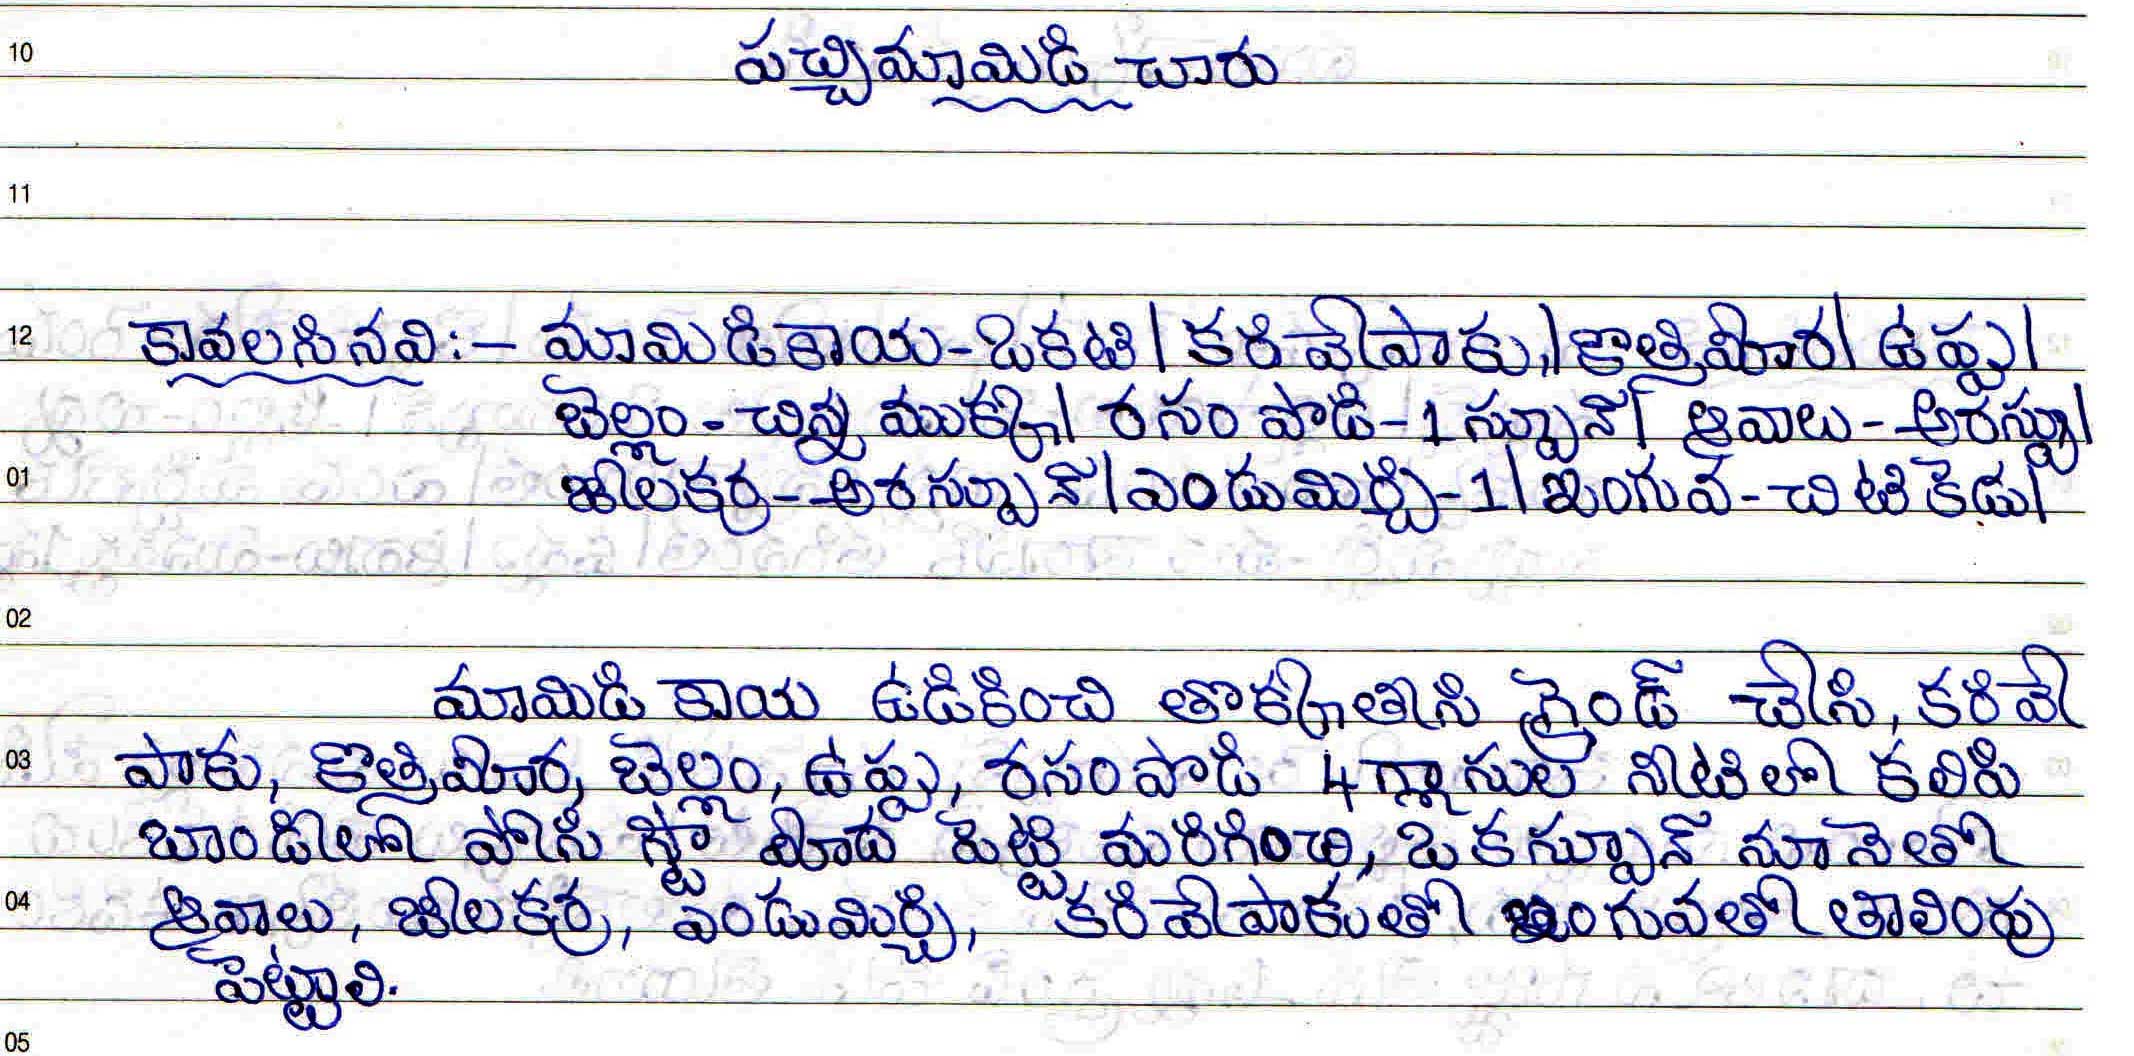 10
పచ్చిమామిడి చారు
11
12 కావలసినవి:- మామిడికాయ-ఒకటి| కరివేపాకు,|కొత్తిమీర| ఉప్పు|
బెల్లం - చిన్న ముక్క| రసం పొడి-1 స్పూన్| ఆవాలు - అరస్పూ|
01 జీలకర్ర - అర స్పూన్|ఎండుమిర్చి-1| ఇంగువ - చిటికెడు|
02
మామిడి కాయ ఉడికించి తొక్కతీసి గ్రైండ్ చేసి, కరివే
03 పాకు, కొత్తిమీర, బెల్లం, ఉప్పు, రసంపొడి 4 గ్లాసుల నీటిలో కలిపి
బాండీలో పోసి స్టౌ మీద పెట్టి మరిగించి, ఒక స్పూన్ నూనెతో
04 ఆవాలు, జీలకర్ర, ఎండుమిర్చి, కరివేపాకుతో ఇంగువతో తాలింపు
పెట్టాలి.
05